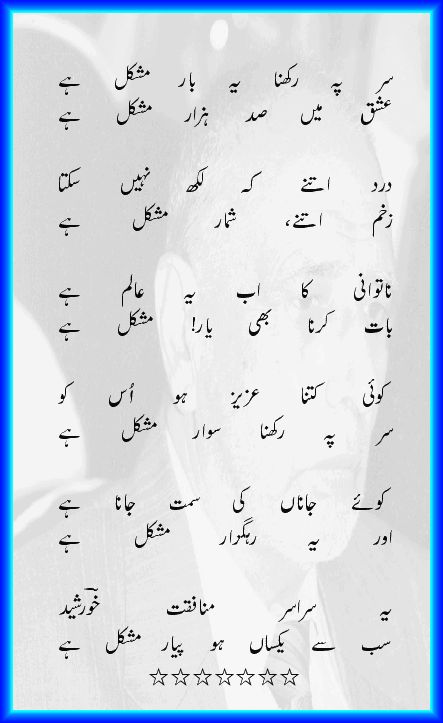 سر پہ رکھنا یہ بار مشکل ہے
عشق میں صد ہزار مشکل ہے
درد اتنے کہ لکھ نہیں سکتا
زخم اتنے، شمار مشکل ہے
ناتوانی کا اب یہ عالم ہے
بات کرنا بھی یار! مشکل ہے
کوئی کتنا عزیز ہو اُس کو
سر پہ رکھنا سوار مشکل ہے
کوئے جاناں کی سمت جانا ہے
اور یہ رہگزار مشکل ہے
یہ سراسر منافقت خورشیدؔ
سب سے یکساں ہو پیار مشکل ہے
☆☆☆☆☆☆☆